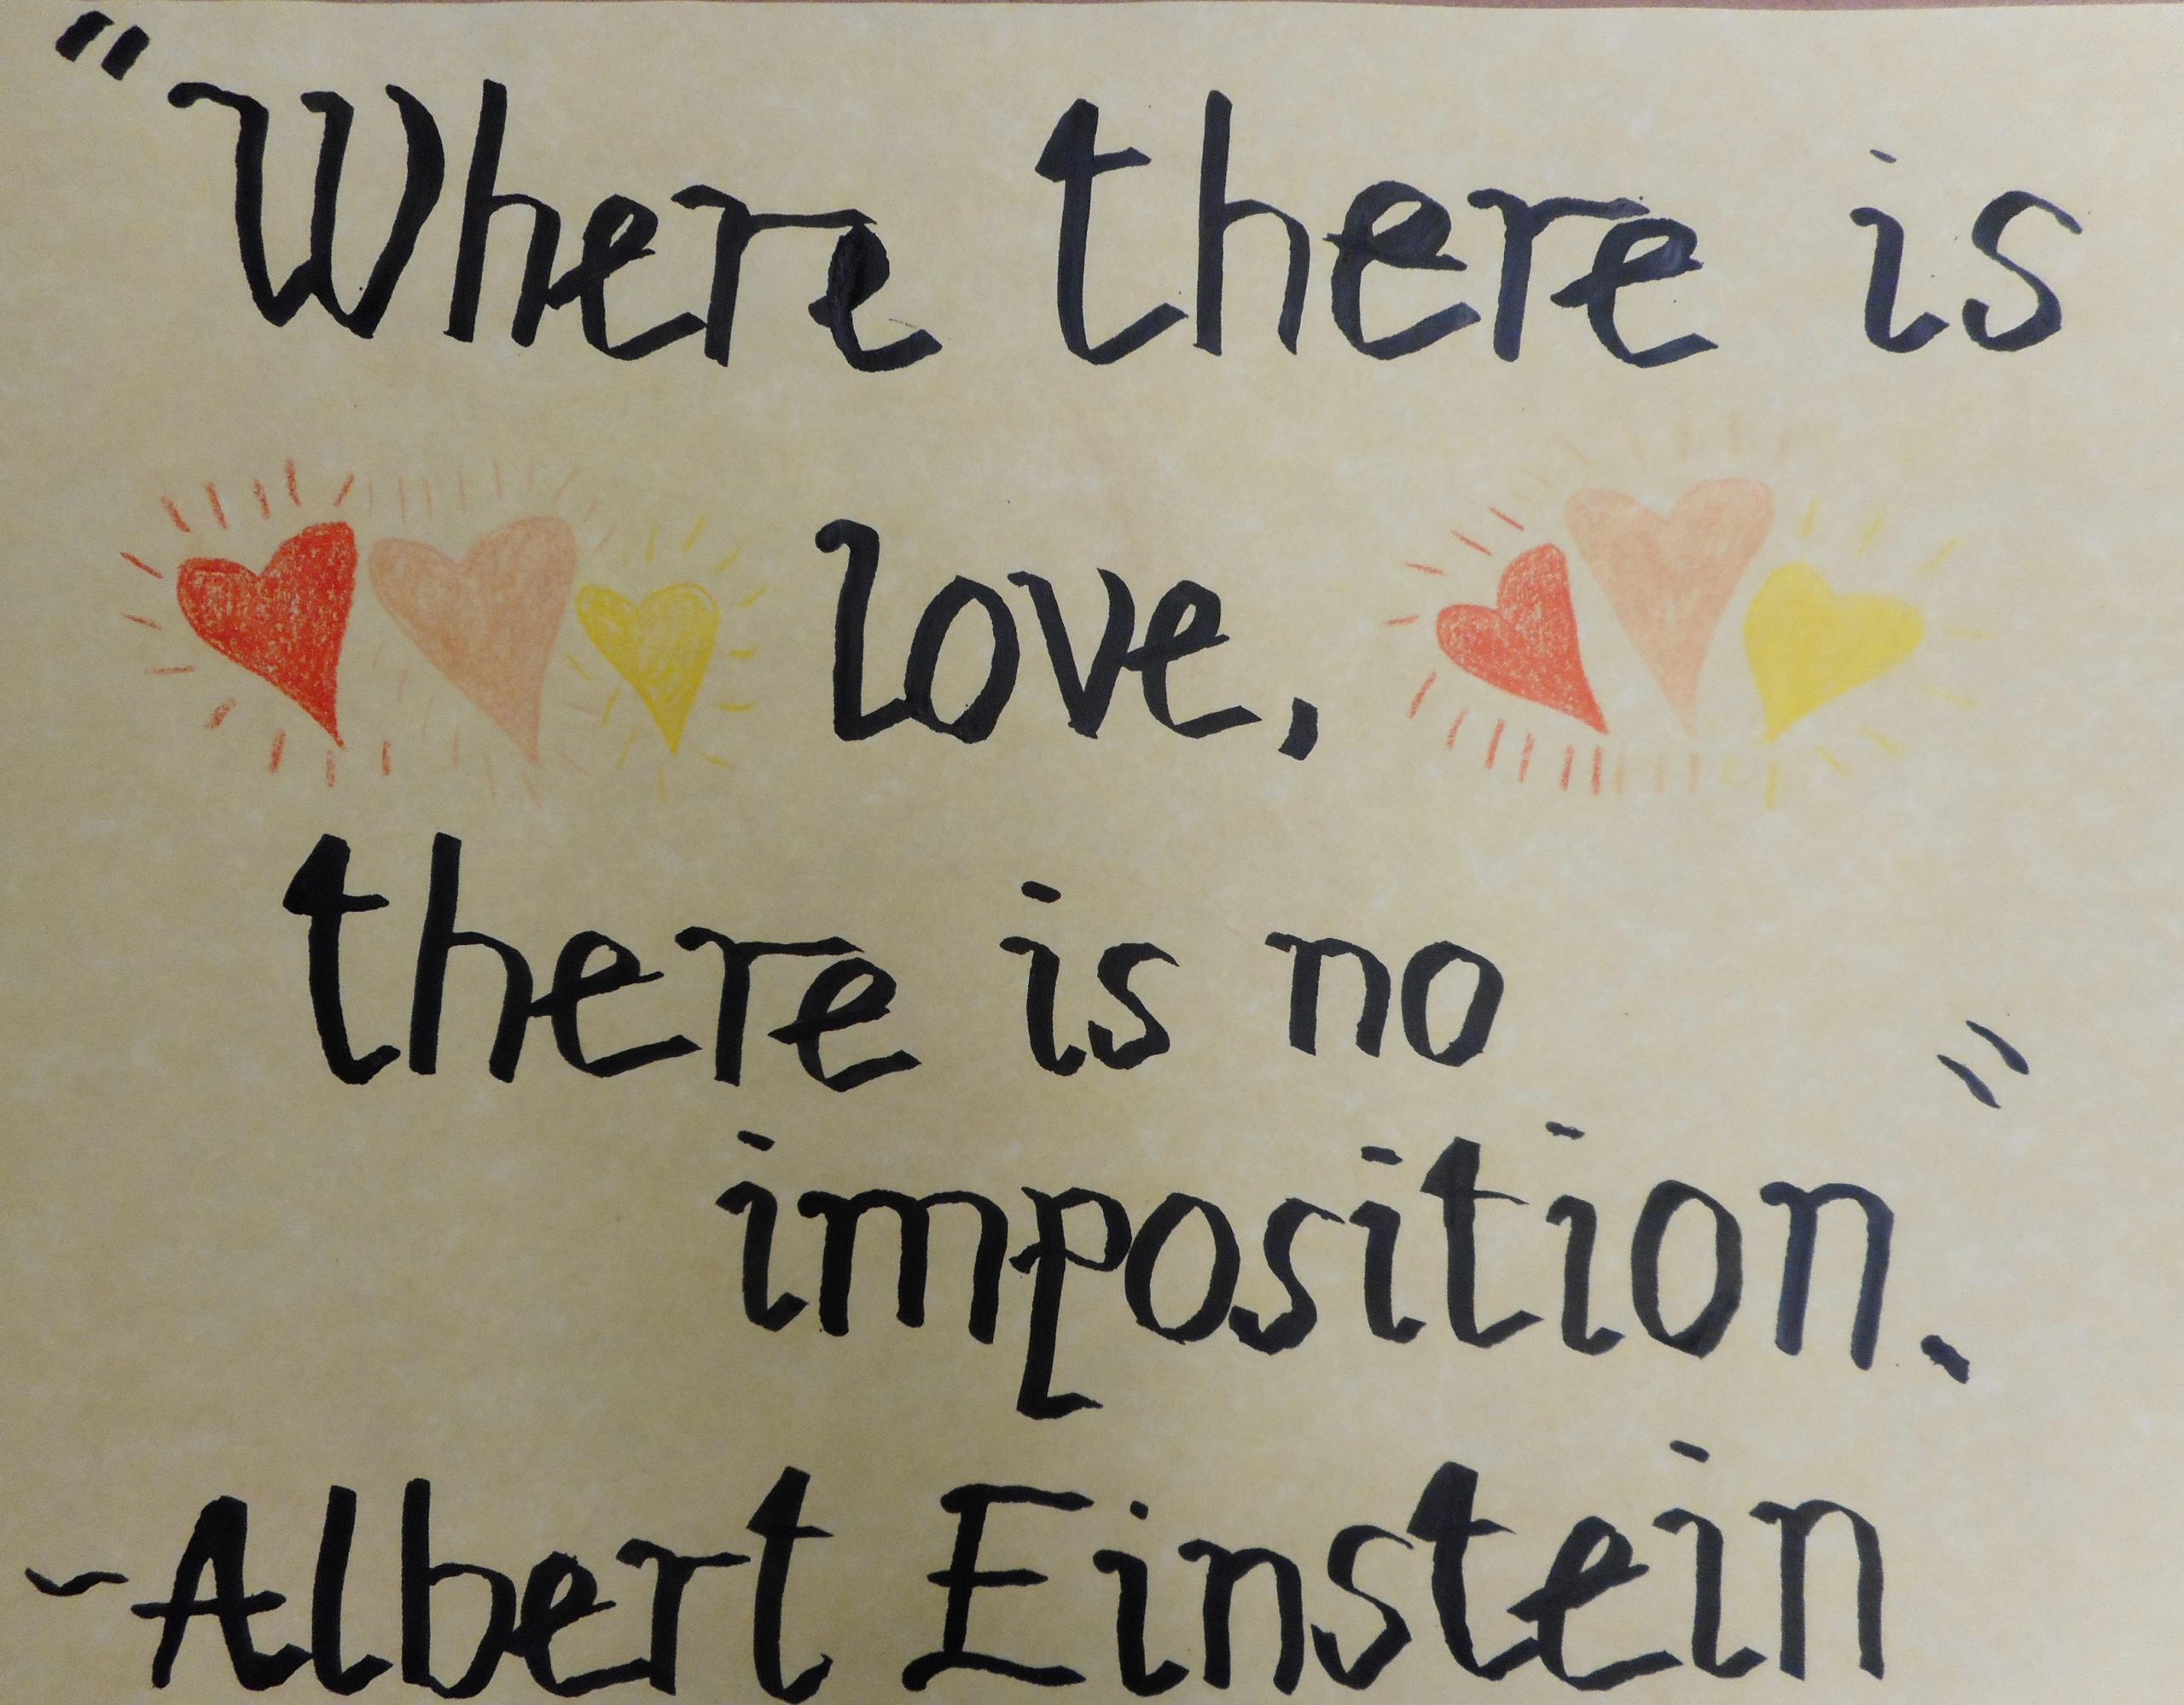 "Where there is
love,
there is no
imposition."
~Albert Einstein